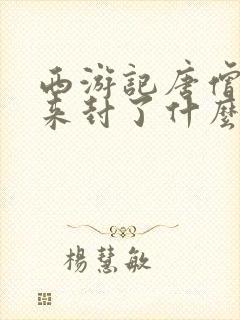 西游記唐僧
来封了什麽
楊慧敏